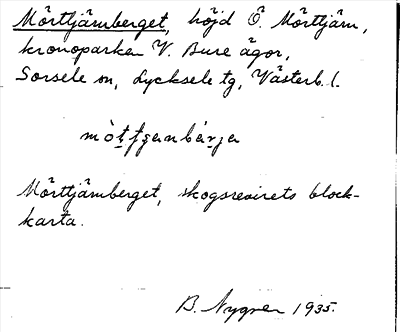 Mörttjärnberget, höjd Ö. Mörttjärn,
kronoparken V. Bure ägor,
Sorsele sn, Lycksele tg, Västerb. l.
Mörttjärnberget, skogsrevirets block-
karta.
B. Nygren 1935.